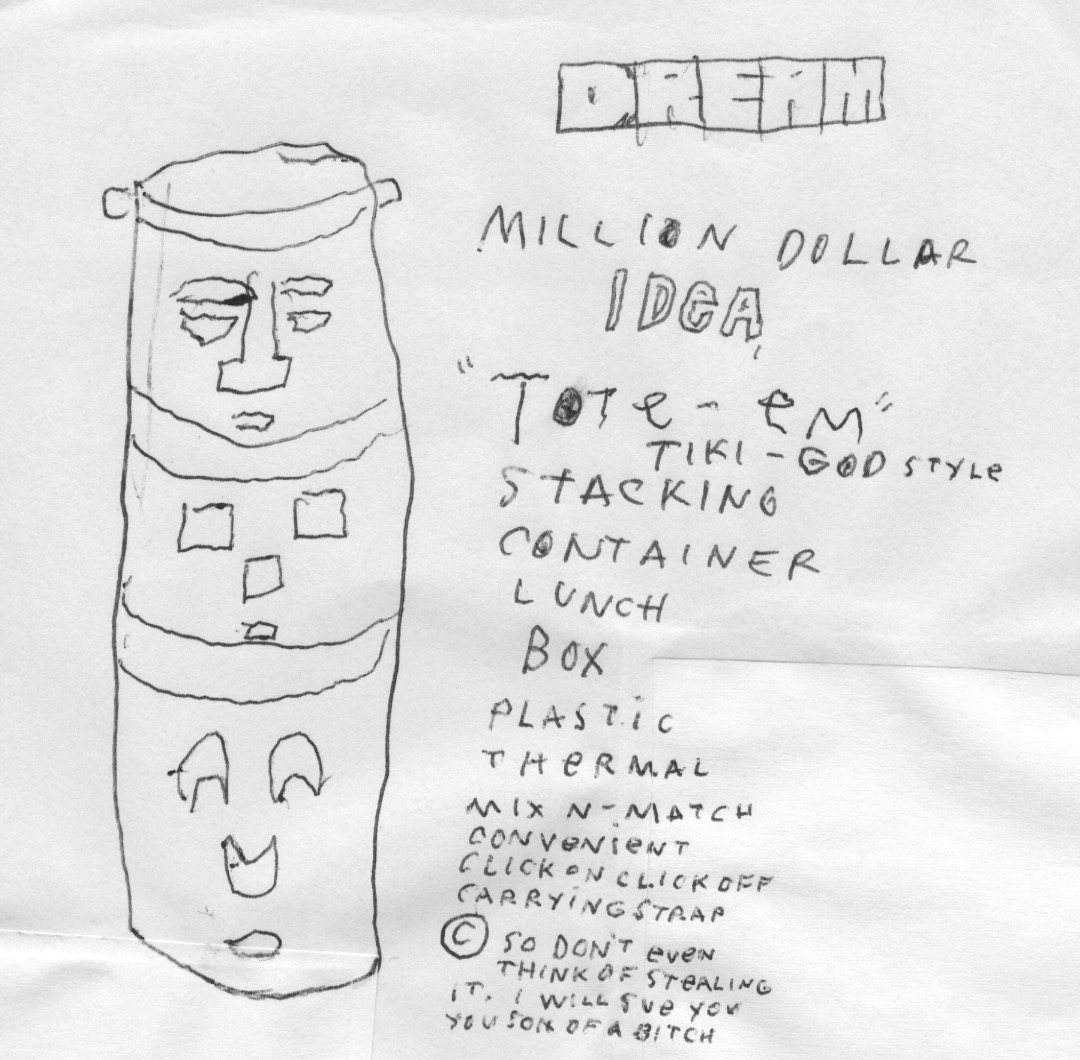 DREAM
MILLION DOLLAR
IDeA,
"TOTe-eM"
TIKI-GOD STYLE
STACKING
CONTAINER
LUNCH
BOX
PLASTiC
THeRMAL
MIX N-MATCH
CONVeNieNT
CLICK ON CLICK OFF
CARRYiNG STRAP
© SO DON'T eveN
THINK OF STeALING
IT. I WILL SUe YOU
YOU SON OF A BITCH